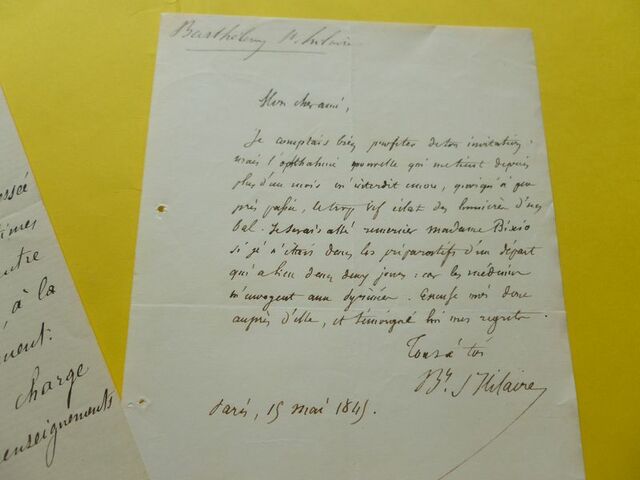 Barthélemy St. hilaire
Mon cher ami,
Je comptais bien profiter de ton invitation :
mais l'ophthalmie nouvelle qui me tient depuis
plus d'un mois m'interdit encore, quoiqu'à peu
près passée, le trop vif éclat des lumières d'un
bal. Je serais allé remercier madame Bixio
si je n'étais dans les préparatifs d'un départ
qui a lieu dans deux jours : car les médecins
m'envoyent aux Pyrénées. Excuse moi donc
auprès d'elle, et témoigne lui mes regrets.
Tout à toi
By. St Hilaire
Paris, 15 mai 1845.
ssée
times
ntre
à la
ment.
charge
enseignements